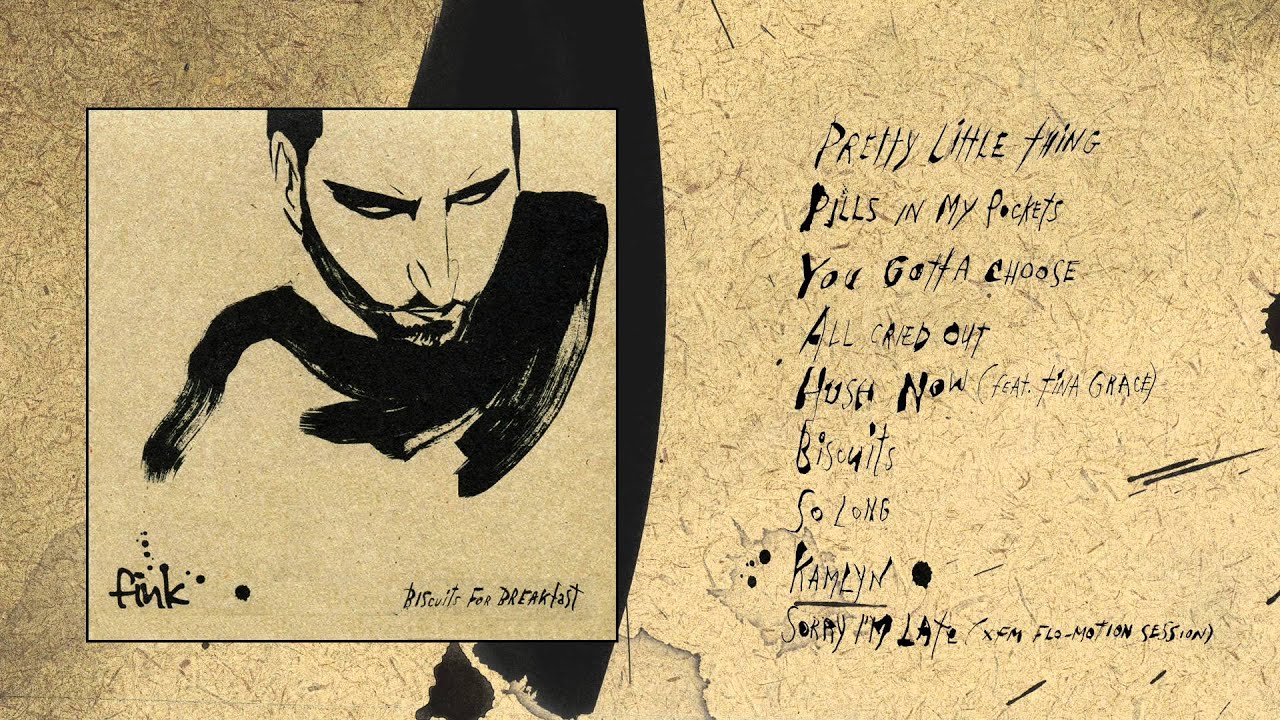 fink
Biscuits for Breakfast
Pretty Little Thing
Pills in My Pockets
You Gotta Choose
All Cried Out
Hush Now (feat. Tina Grace)
Biscuits
So Long
Kamlyn
Sorry I'm Late (XFM Flo-Motion Session)